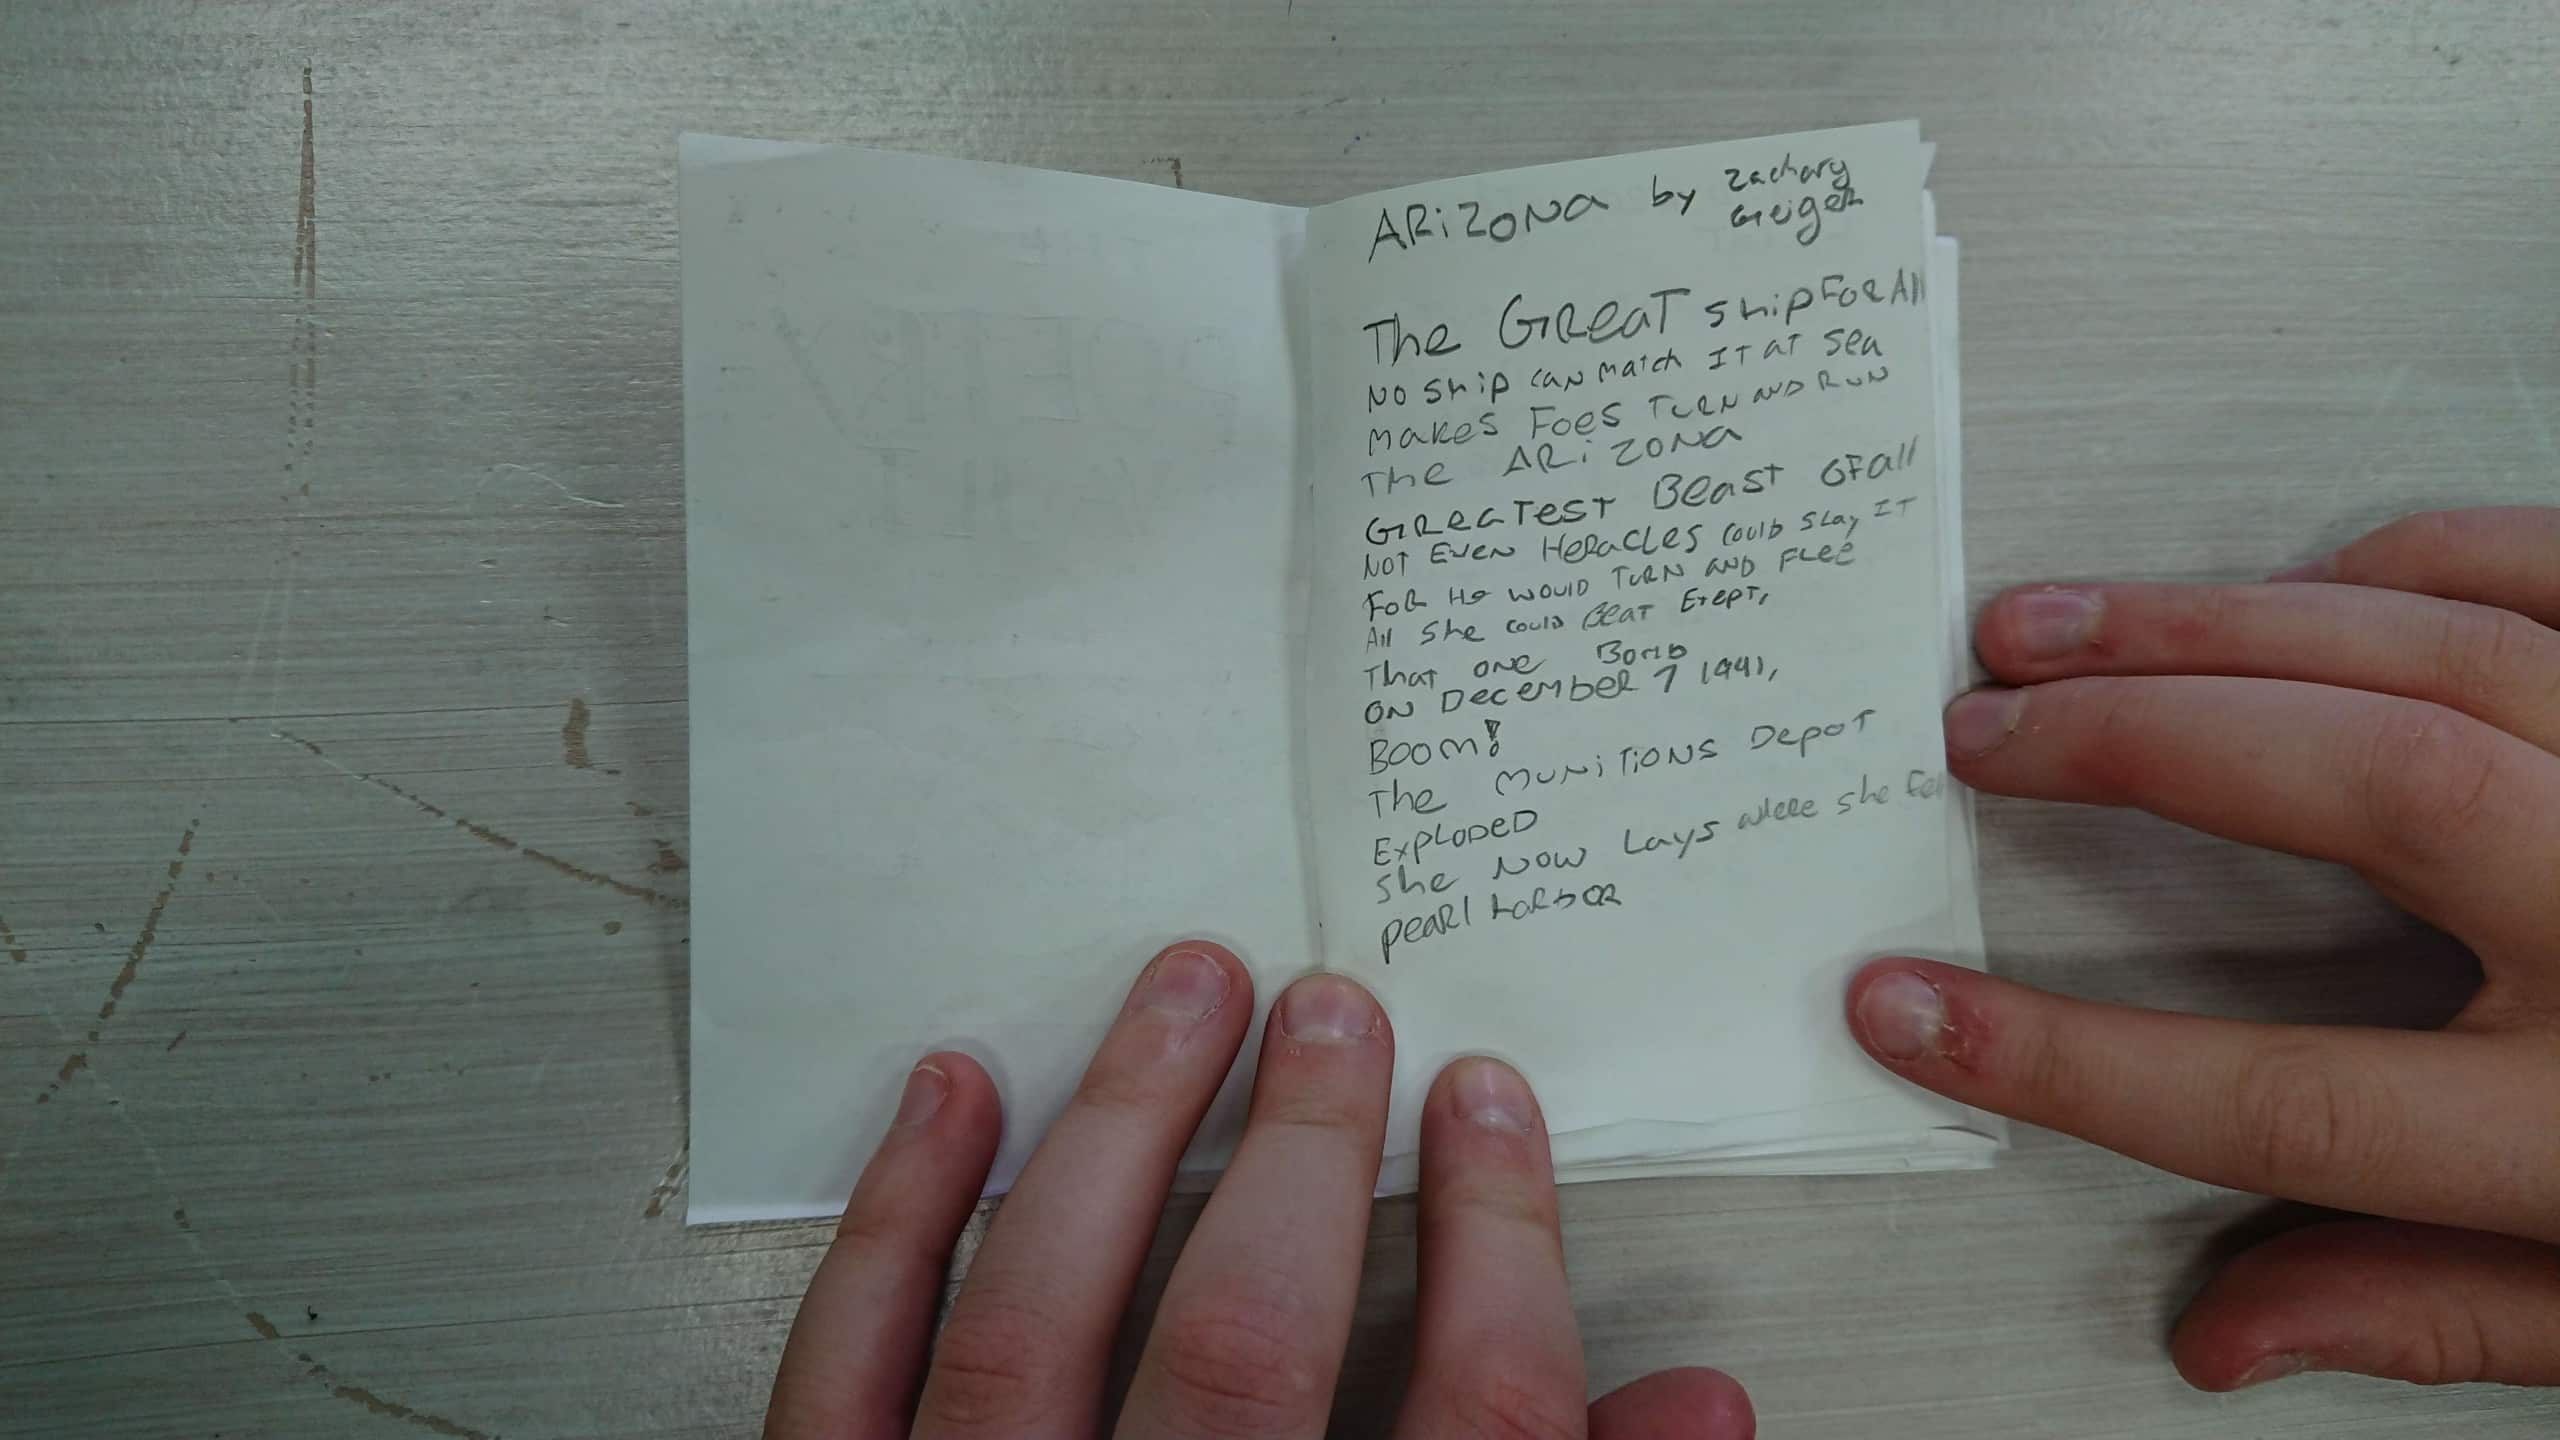 ARiZONA by Zachary Geiger
The GReaT ship FOR All
NO Ship CAN Match IT AT Sea
Makes Foes TURN AND RUN
The ARiZONA
GReaTesT Beast OF all
NOT EVEN HeRacles could slay IT
FOR He would TURN AND FLee
All She could Beat Exept,
That one Bomb
ON December 7 1941,
BOOM!
The MUNiTiONS Depot
ExpLODeD
She NOW Lays where she Fell
pearl harbor